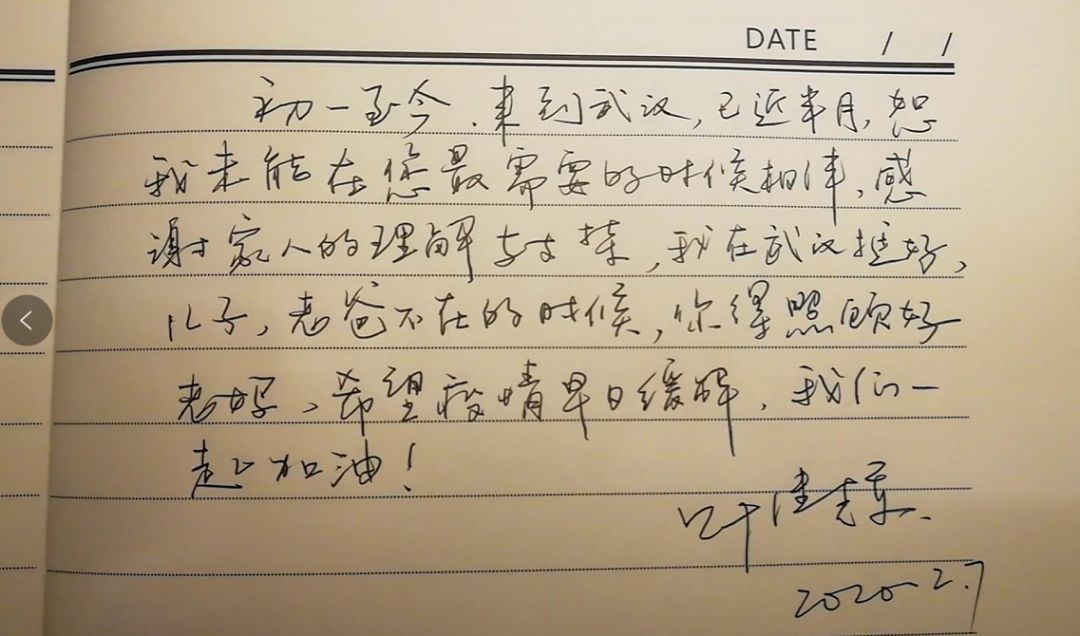 DATE / /
初一至今，来到武汉，已近半月，恕
我未能在您最需要的时候相伴，感
谢家人的理解与支持，我在武汉挺好，
儿子，老爸不在的时候，你得照顾好
老妈、希望疫情早日缓解，我们一
起加油！
叶
2020-2.7